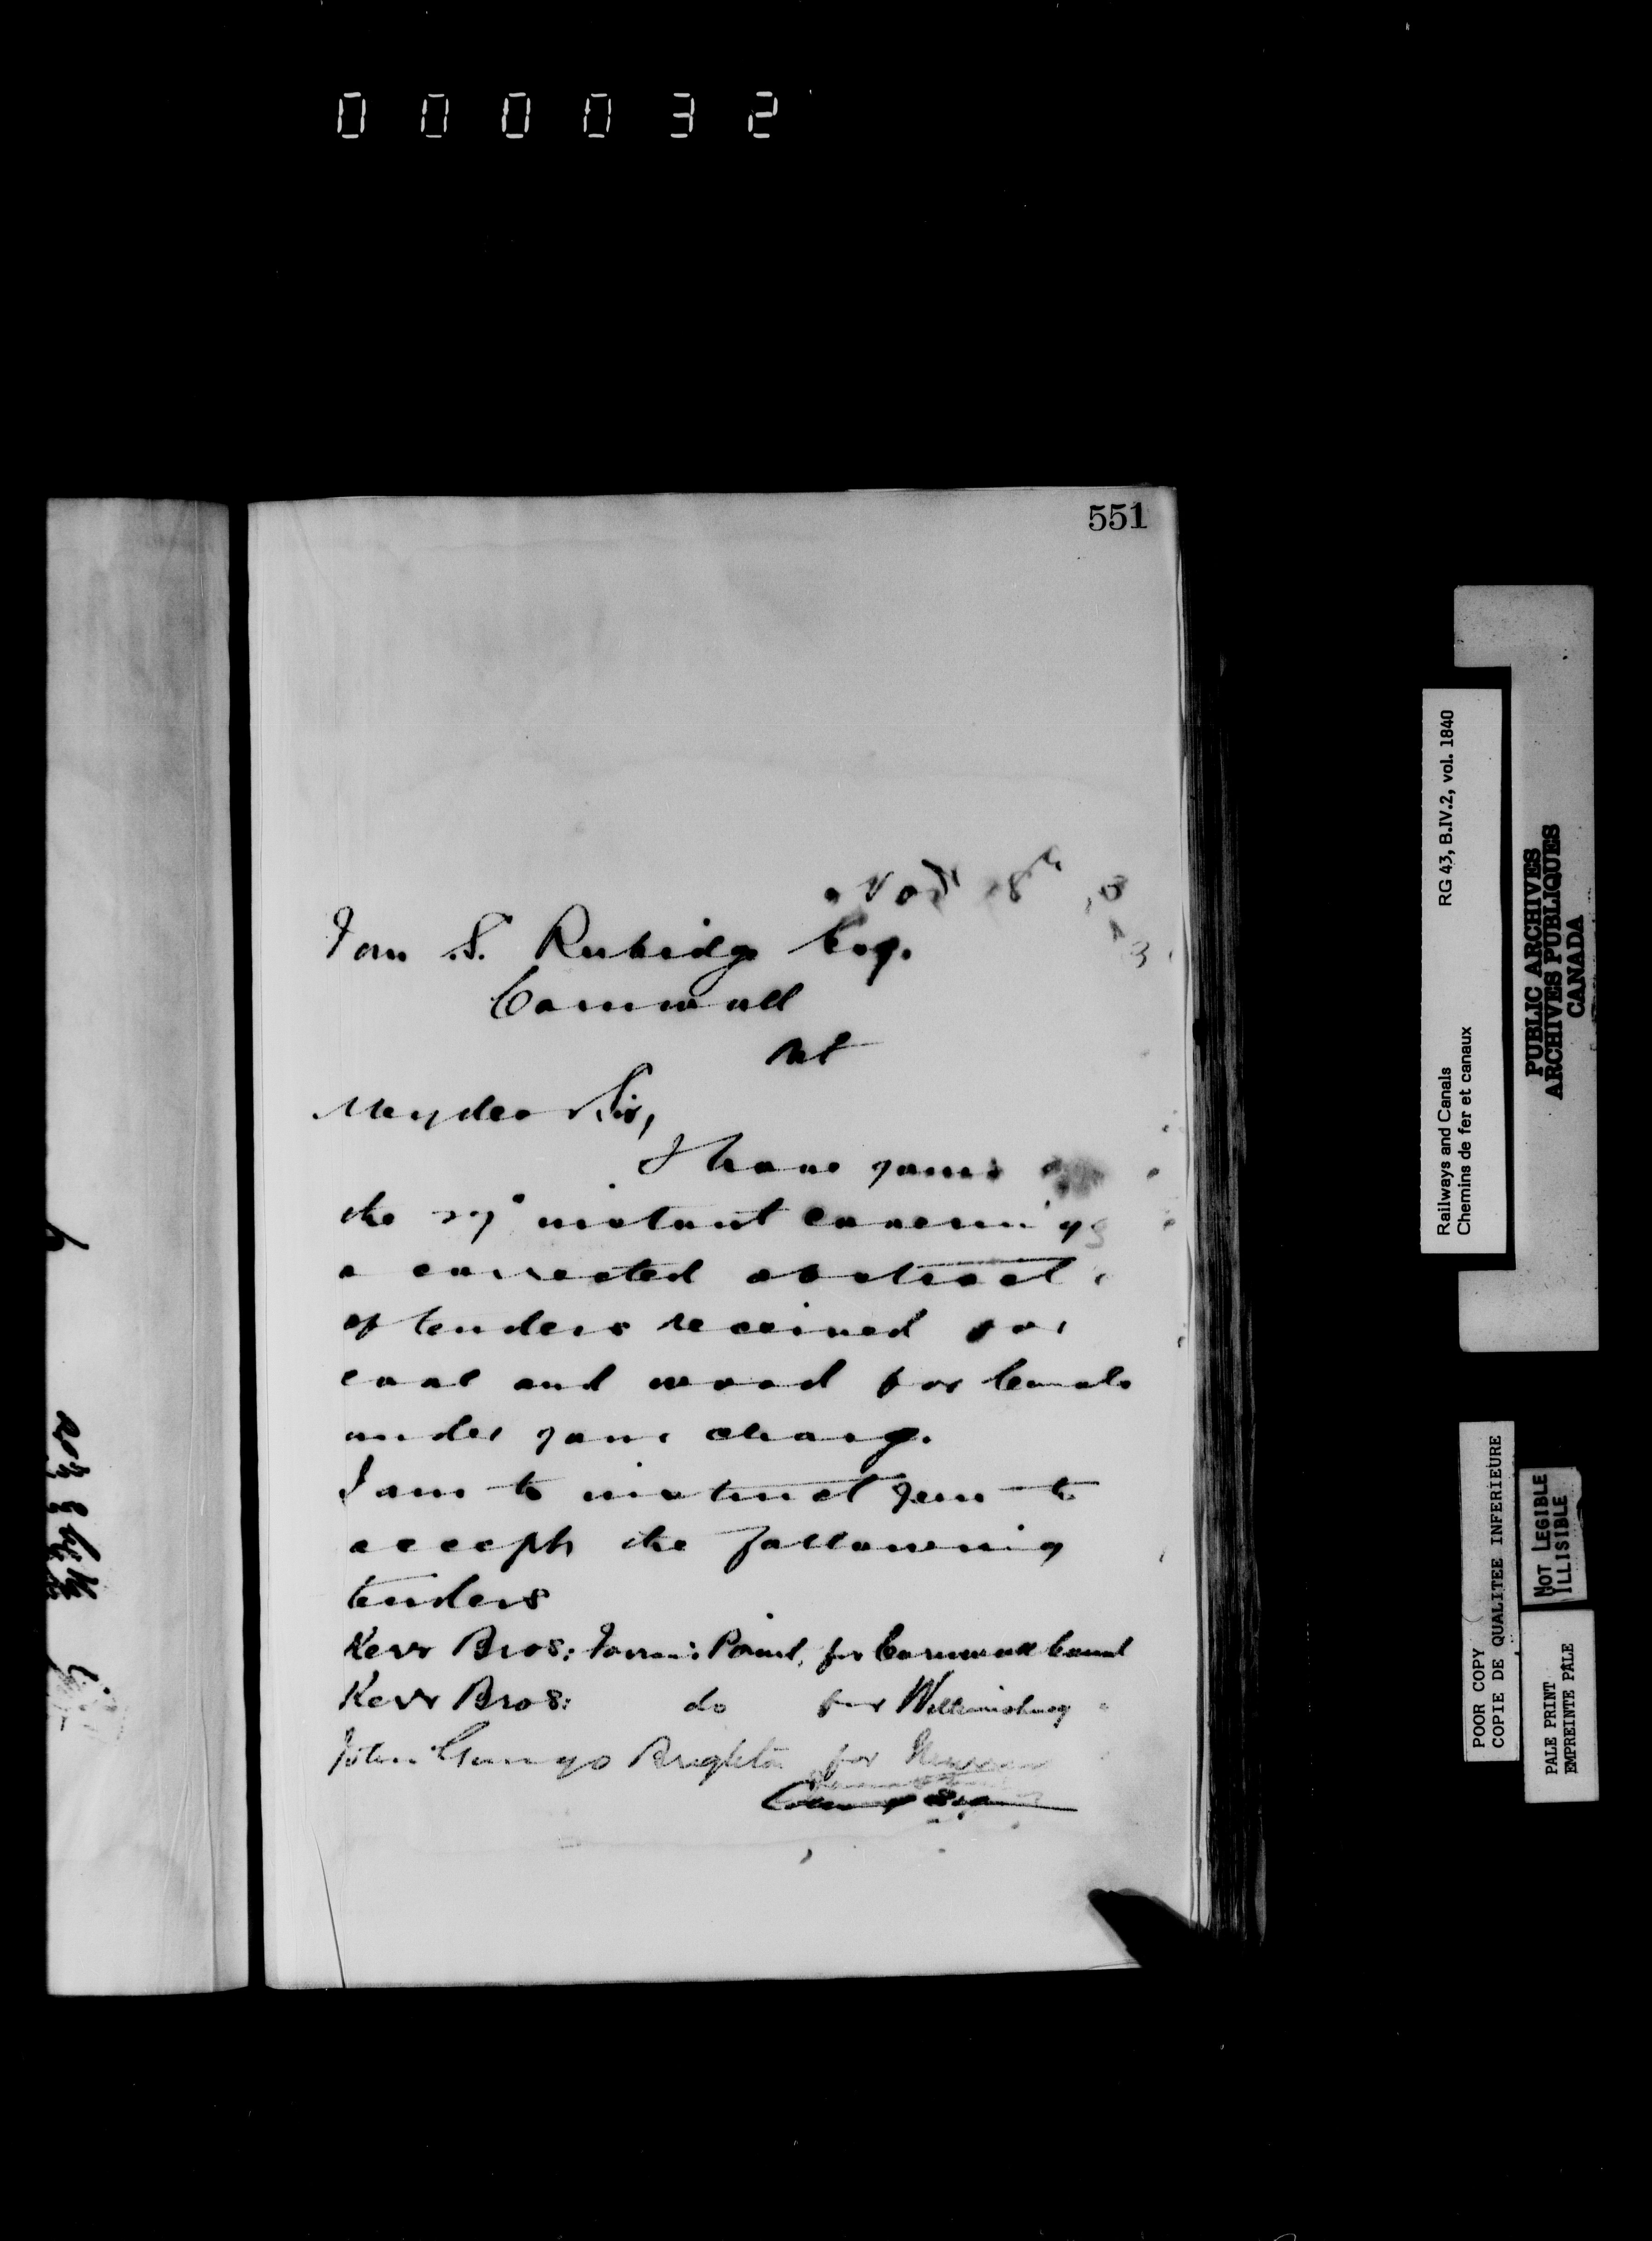 000032
551
Nov 8th
Tom S. Rubidge Esq.
Cornwall
Ont
My dear Sir,
I have yours
the instant concerning
a corrected abstract
of tenders received for
coal and wood for Canals
under your charge.
I am to instruct you to
accept the following
tenders
Kerr Bros: Farran's Point, for Cornwall Canal
Kerr Bros: do for Williamsburg
John Brighton for Murray
Railways and Canals RG 43, B.IV.2, vol. 1840
Chemins de fer et canaux
PUBLIC ARCHIVES
ARCHIVES PUBLIQUES
CANADA
POOR COPY
COPIE DE QUALITEE INFERIEURE
NOT LEGIBLE
ILLISIBLE
PALE PRINT
EMPREINTE PÂLE